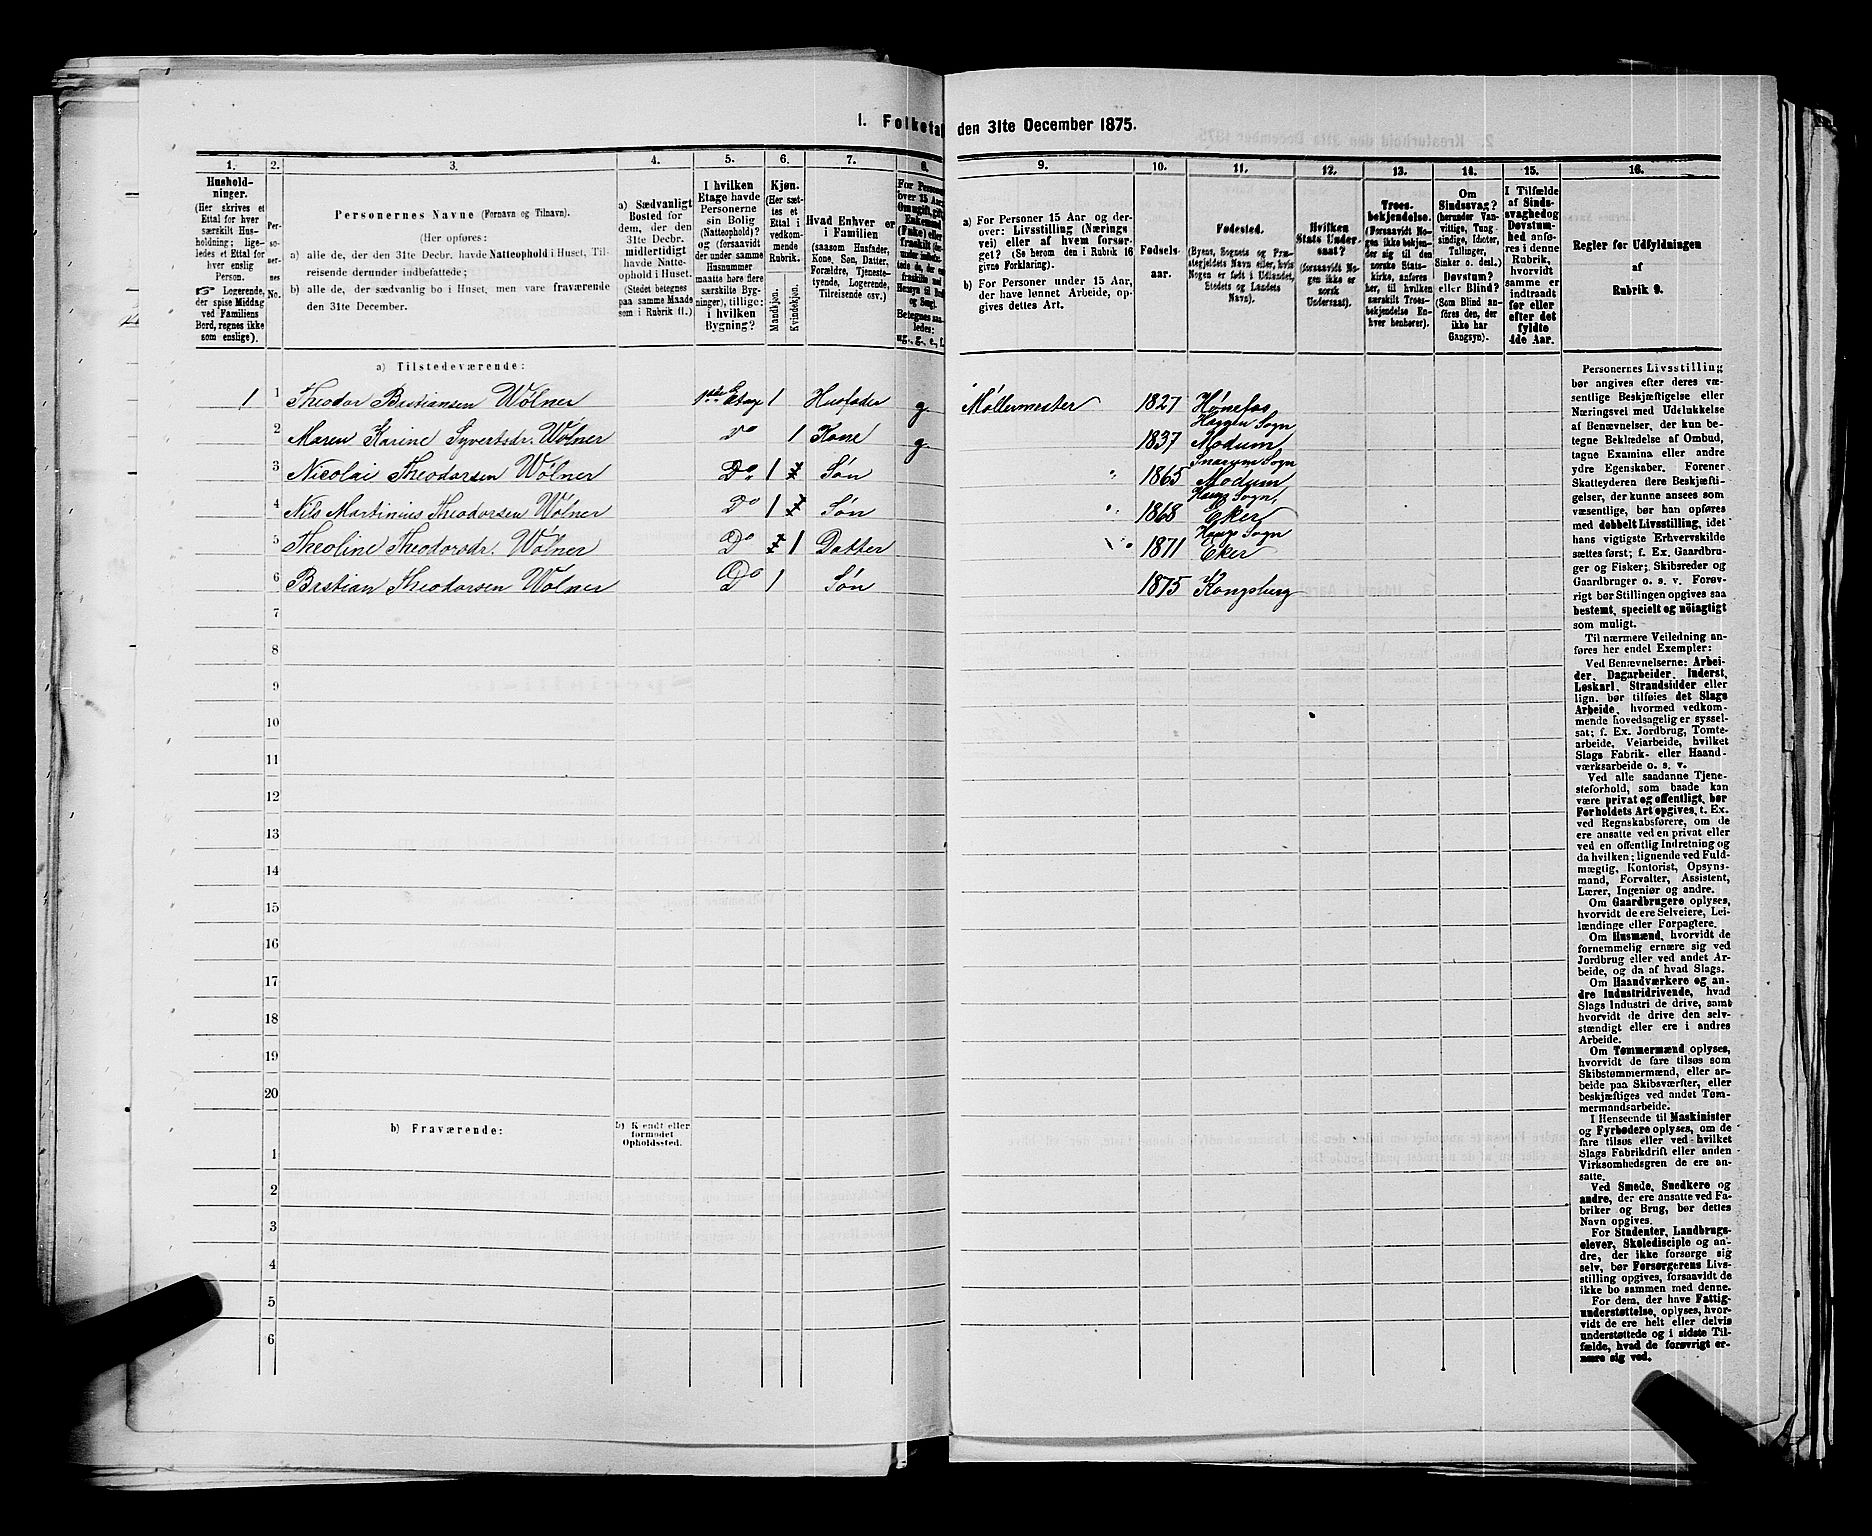 I. Folketal den 31te December 1875.
1. 2. 3. 4. 5. 6. 7. 8. 9. 10. 11. 12. 13. 14. 15. 16.
Hushold-
ninger.
(Her skrives et
Ettal for hver
særskilt Hus-
holdning; lige-
ledes et Ettal for
hver enslig
Person.
☞ Logerende,
der spise Middag
ved Familiens
Bord, regnes ikke
som enslige).
Per-
so-
ner-
nes
No.
Personernes Navne (Fornavn og Tilnavn).
(Her opføres:
a) alle de, der den 31te Decbr. havde Natteophold i Huset, Til-
reisende derunder indbefattede;
b) alle de, der sædvanlig bo i Huset, men vare fraværende
den 31te December.
a) Sædvanligt
Bosted for
dem, der den
31te Decbr.
midlertidigt
havde Natte-
ophold i Huset.
(Stedet betegnes
paa samme Maade
som i Rubrik 11.)
I hvilken
Etage havde
Personerne
sin Bolig
(Natteophold)?
og (forsaavidt
der under samme
Husnummer
maatte høre flere
særskilte Byg-
ninger), tillige:
i hvilken
Bygning?
Kjøn.
(Her sæt-
tes et
Ettal i
vedkom-
mende
Rubrik.
Mandkjøn.
Kvindekjøn.
Hvad Enhver er
i Familien
(saasom Husfader,
Kone, Søn, Datter,
Forældre, Tjeneste-
tyende, Logerende,
Tilreisende osv.)
For Personer
over 15 Aar:
Om ugift, gift,
Enkemand
(Enke) eller
fraskilt
Betegnes saa-
ledes:
ug., g., e., f.
a) For Personer 15 Aar og der-
over: Livsstilling (Nærings
vei) eller af hvem forsør-
get? (Se herom den i Rubrik 16
givne Forklaring).
b) For Personer under 15 Aar,
der have lønnet Arbeide, op-
gives dettes Art.
Fødsels-
aar.
Fødested.
(Byens, Sognets og Præ-
stegjeldets Navn eller, hvis
Nogen er født i Udlandet,
Stedets og Landets
Navn).
Hvilken
Stats Under-
saat?
(forsaavidt No-
gen ikke er
norsk
Undersaat).
Troes-
bekjendelse.
(Forsaavidt No-
gen ikke bekjen-
der sig til den
norske Stats-
kirke, anføres
her, til hvilken
særskilt Troes-
bekjendelse En-
hver henhører).
Om
Sindssvag?
(herunder Van-
vittige, Tung-
sindige, Idioter,
Tullinger,
Sinker o. desl.)
Døvstum?
eller Blind?
(Som Blind an-
føres den, der
ikke har
Gangsyn).
I Tilfælde
af Sinds-
svaghed og
Døvstum-
hed anfø-
res i denne
Rubrik,
hvorvidt
samme er
indtraadt
før eller
efter det
fyldte
4de Aar.
Regler for Udfyldningen
af
Rubrik 9.
a) Tilstedeværende:
1 1 Theodor Bestiansen Wölner 1ste Etage 1 Husfader g Møllermester 1827 Hønefos
2 Maren Karine Syvertsdr. Wölner Do 1 Kone g 1837 Heggen Sogn Modum
3 Nicolai Theodorsen Wölner Do 1 Søn 1865 Snarum Sogn Modum
4 Nils Martinius Theodorsen Wölner Do 1 Søn 1868 Haugs Sogn, Eker
5 Theoline Theodorsdr. Wölner Do 1 Datter 1871 Haugs Sogn Eker
6 Bestian Theodorsen Wölner Do 1 Søn 1875 Kongsberg
7
8
9
10
11
12
13
14
15
16
17
18
19
20
b) Fraværende:
b) Kjendt eller
formodet
Opholdssted.
1
2
3
4
5
6
Personernes Livsstilling
bør angives efter deres væ-
sentlige Beskjæftigelse eller
Næringsvei med Udelukkelse
af Benævnelser, der kun be-
tegne Beklædelse af Ombud,
tagne Examina eller andre
ydre Egenskaber. Forener
Skatteyderen flere Beskjæfti-
gelser, der kunne ansees som
væsentlige, bør han opføres
med dobbelt Livsstilling, idet
hans vigtigste Erhvervskilde
sættes først; f. Ex. Gaardbru-
ger og Fisker; Skibsreder og
Gaardbruger o. s. v. Forøv-
rigt bør Stillingen opgives saa
bestemt, specielt og nöiagtigt
som muligt.
Til nærmere Veiledning an-
føres her endel Exempler:
Ved Benævnelserne: Arbei-
der, Dagarbeider, Inderst,
Løskarl, Strandsidder eller
lign. bør tilføies det Slags
Arbeide, hvormed vedkom-
mende hovedsagelig er syssel-
sat; f. Ex. Jordbrug, Tomte-
arbeide, Veiarbeide, hvilket
Slags Fabrik- eller Haand-
værksarbeide o. s. v.
Ved alle saadanne Tjene-
steforhold, som baade kan
være privat og offentligt, bør
Forholdets Art opgives, t. Ex.
ved Regnskabsførere, om de
ere ansatte ved en privat eller
ved en offentlig Indretning og
da hvilken; lignende ved Fuld-
mægtig, Kontorist, Opsyns-
mand, Forvalter, Assistent,
Lærer, Ingeniør og andre.
Om Gaardbrugere oplyses,
hvorvidt de ere Selveiere, Lei-
lændinge eller Forpagtere.
Om Husmænd, hvorvidt de
fornemmelig ernære sig ved
Jordbrug eller ved andet Ar-
beide, og da af hvad Slags.
Om Haandværkere og an-
dre Industridrivende, hvad
Slags Industri de drive, samt
hvorvidt de drive den selv-
stændigt eller ere i andres
Arbeide.
Om Tømmermænd oplyses,
hvorvidt de fare tilsøs som
Skibstømmermænd, eller ar-
beide paa Skibsværfter, eller
beskjæftiges ved andet Tøm-
mermandsarbeide.
I Henseende til Maskinister
og Fyrbødere oplyses, om de
fare tilsøs eller ved hvilket
Slags Fabrikdrift eller anden
Virksomhedsgren de ere an-
satte.
Ved Smede, Snedkere og
andre, der ere ansatte ved Fa-
briker og Brug, bør dettes
Navn opgives.
For Studenter, Landbrugs-
elever, Skoledisciple og an-
dre, der ikke forsørge sig
selv, bør Forsørgerens Livs-
stilling opgives, forsaavidt de
ikke bo sammen med denne.
For dem, der have Fattig-
understøttelse, oplyses, hvor-
vidt de ere helt eller delvis
understøttede og i sidste Til-
fælde, hvad de forøvrigt er-
nære sig ved.